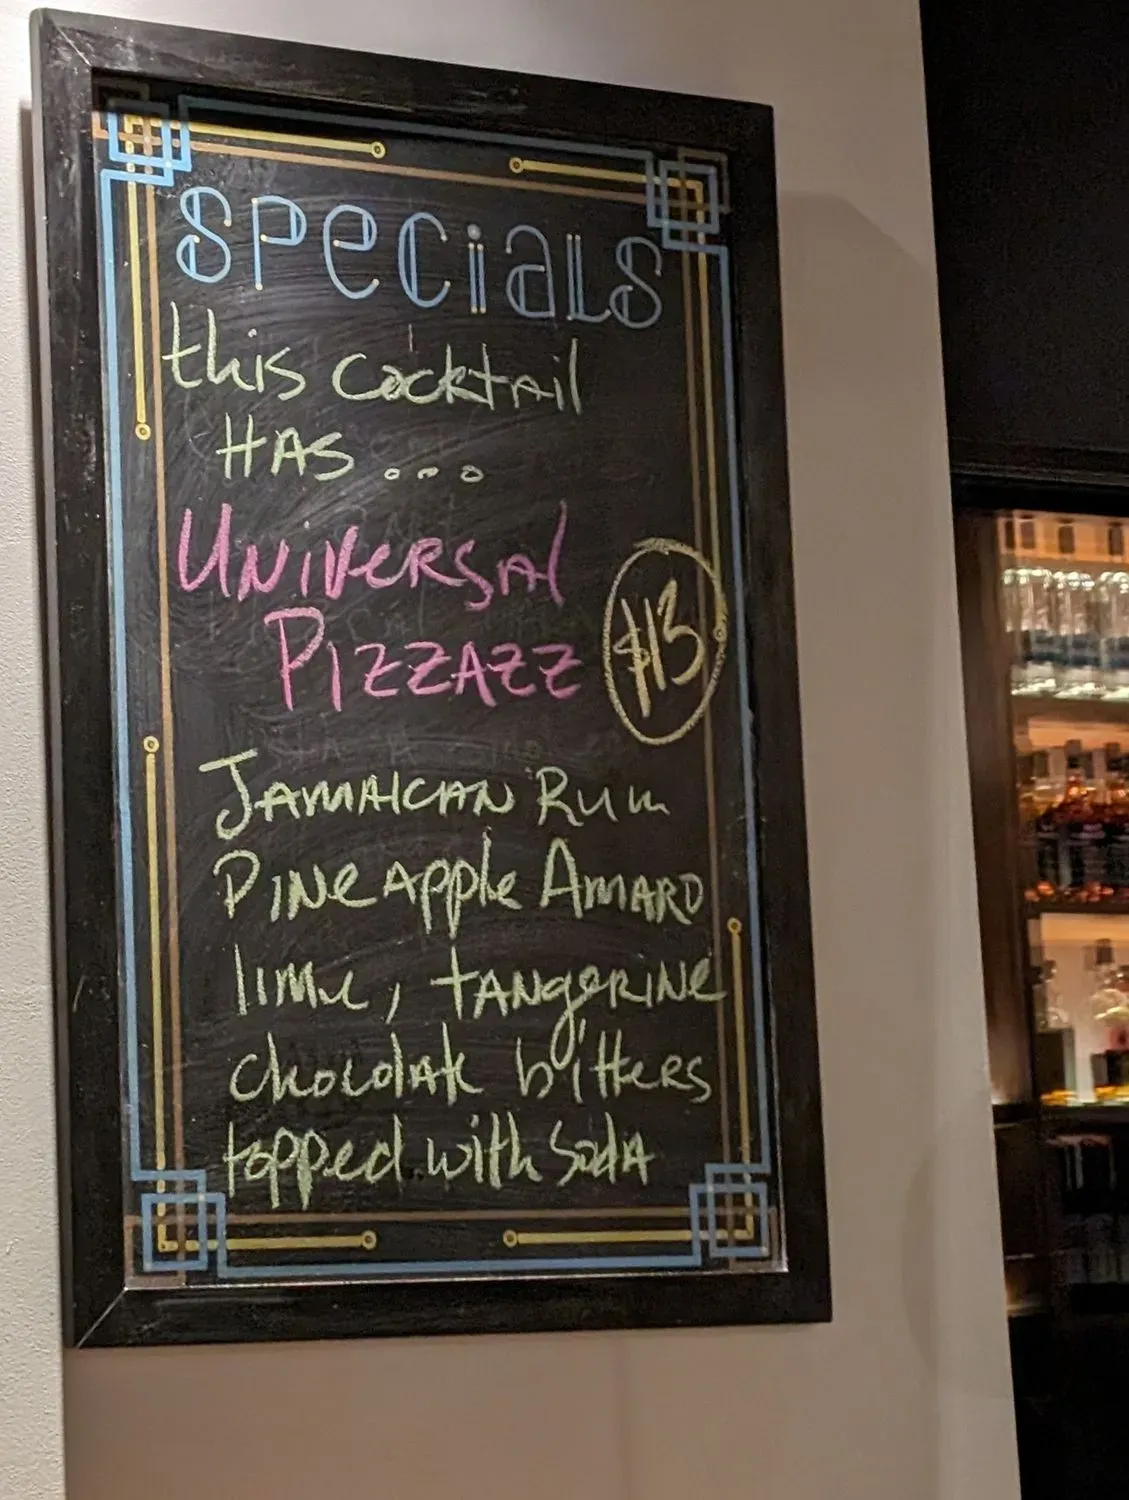 SPeciaLS
this cocktail
HAS...
UNIVeRSAl
PIZZAZZ
$13
JAMAICAN RUM
PINeApple AMARO
lime, tANgeRINe
chocolate bitteRS
topped with sodA